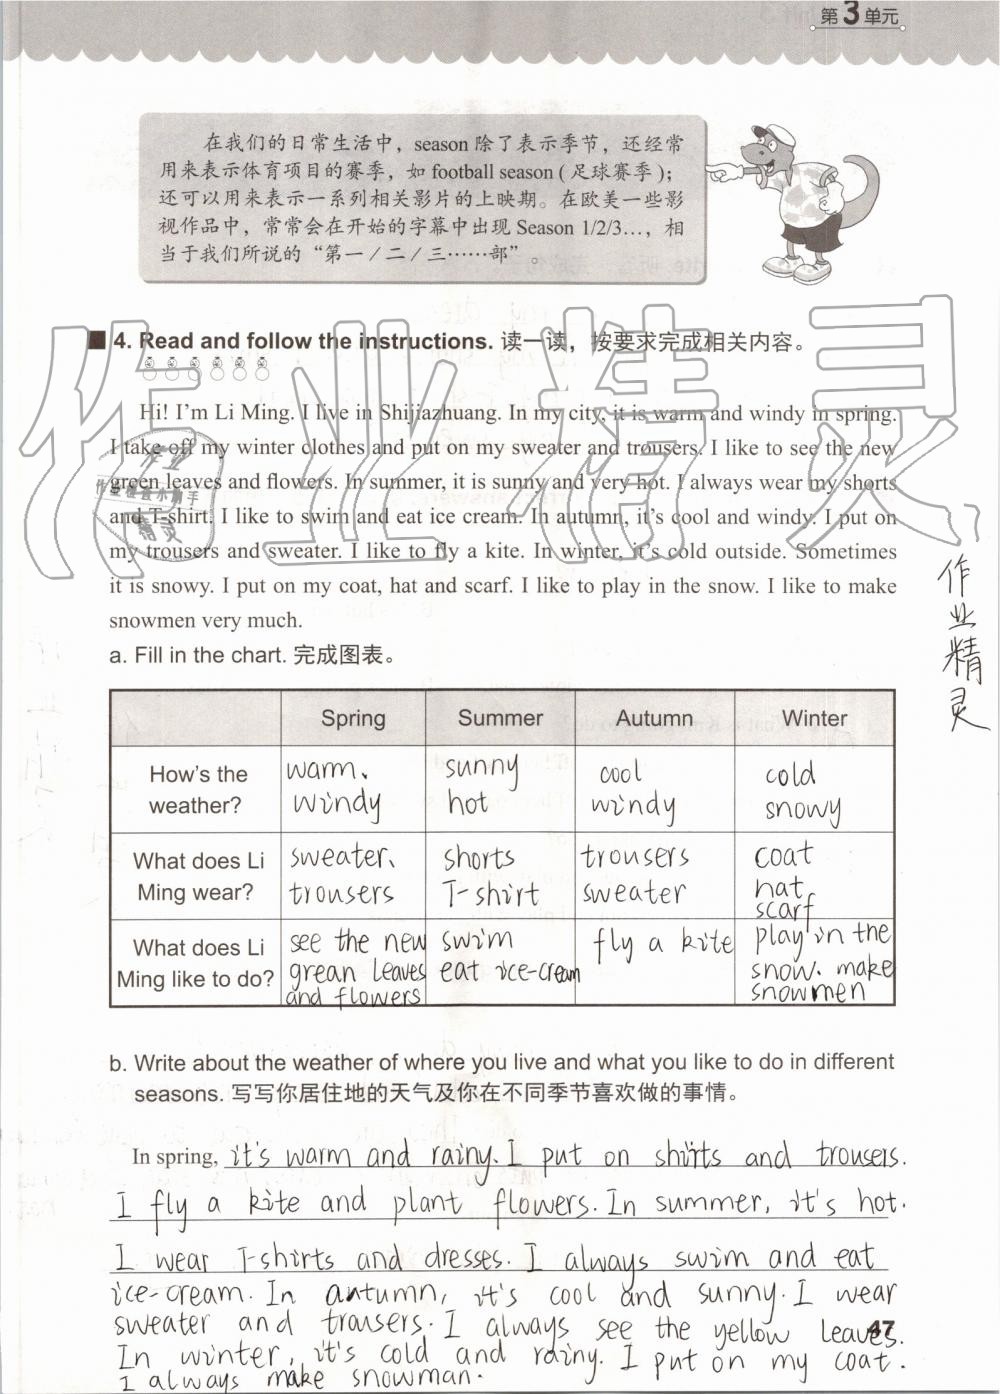 第3单元
在我们的日常生活中，season 除了表示季节，还经常
用来表示体育项目的赛季，如 football season ( 足球赛季 )；
还可以用来表示一系列相关影片的上映期。在欧美一些影
视作品中，常常会在开始的字幕中出现 Season 1/2/3…，相
当于我们所说的“第一/二/三……部”。
4. Read and follow the instructions. 读一读，按要求完成相关内容。
Hi! I'm Li Ming. I live in Shijiazhuang. In my city, it is warm and windy in spring.
I take off my winter clothes and put on my sweater and trousers. I like to see the new
green leaves and flowers. In summer, it is sunny and very hot. I always wear my shorts
and T-shirt. I like to swim and eat ice cream. In autumn, it's cool and windy. I put on
my trousers and sweater. I like to fly a kite. In winter, it's cold outside. Sometimes
it is snowy. I put on my coat, hat and scarf. I like to play in the snow. I like to make
snowmen very much.
作业精灵
作业精灵
a. Fill in the chart. 完成图表。
Spring Summer Autumn Winter
How's the weather?
warm、 windy
sunny hot
cool windy
cold snowy
What does Li Ming wear?
sweater、 trousers
shorts T-shirt
trousers sweater
coat hat scarf
What does Li Ming like to do?
see the new grean leaves and flowers
swim eat ice-cream
fly a kite
play in the snow、make snowmen
b. Write about the weather of where you live and what you like to do in different
seasons. 写写你居住地的天气及你在不同季节喜欢做的事情。
In spring, it's warm and rainy. I put on shirts and trousers.
I fly a kite and plant flowers. In summer, it's hot.
I wear T-shirts and dresses. I always swim and eat
ice-cream. In autumn, it's cool and sunny. I wear
sweater and trousers. I always see the yellow leaves.
In winter, it's cold and rainy. I put on my coat.
I always make snowman.
47